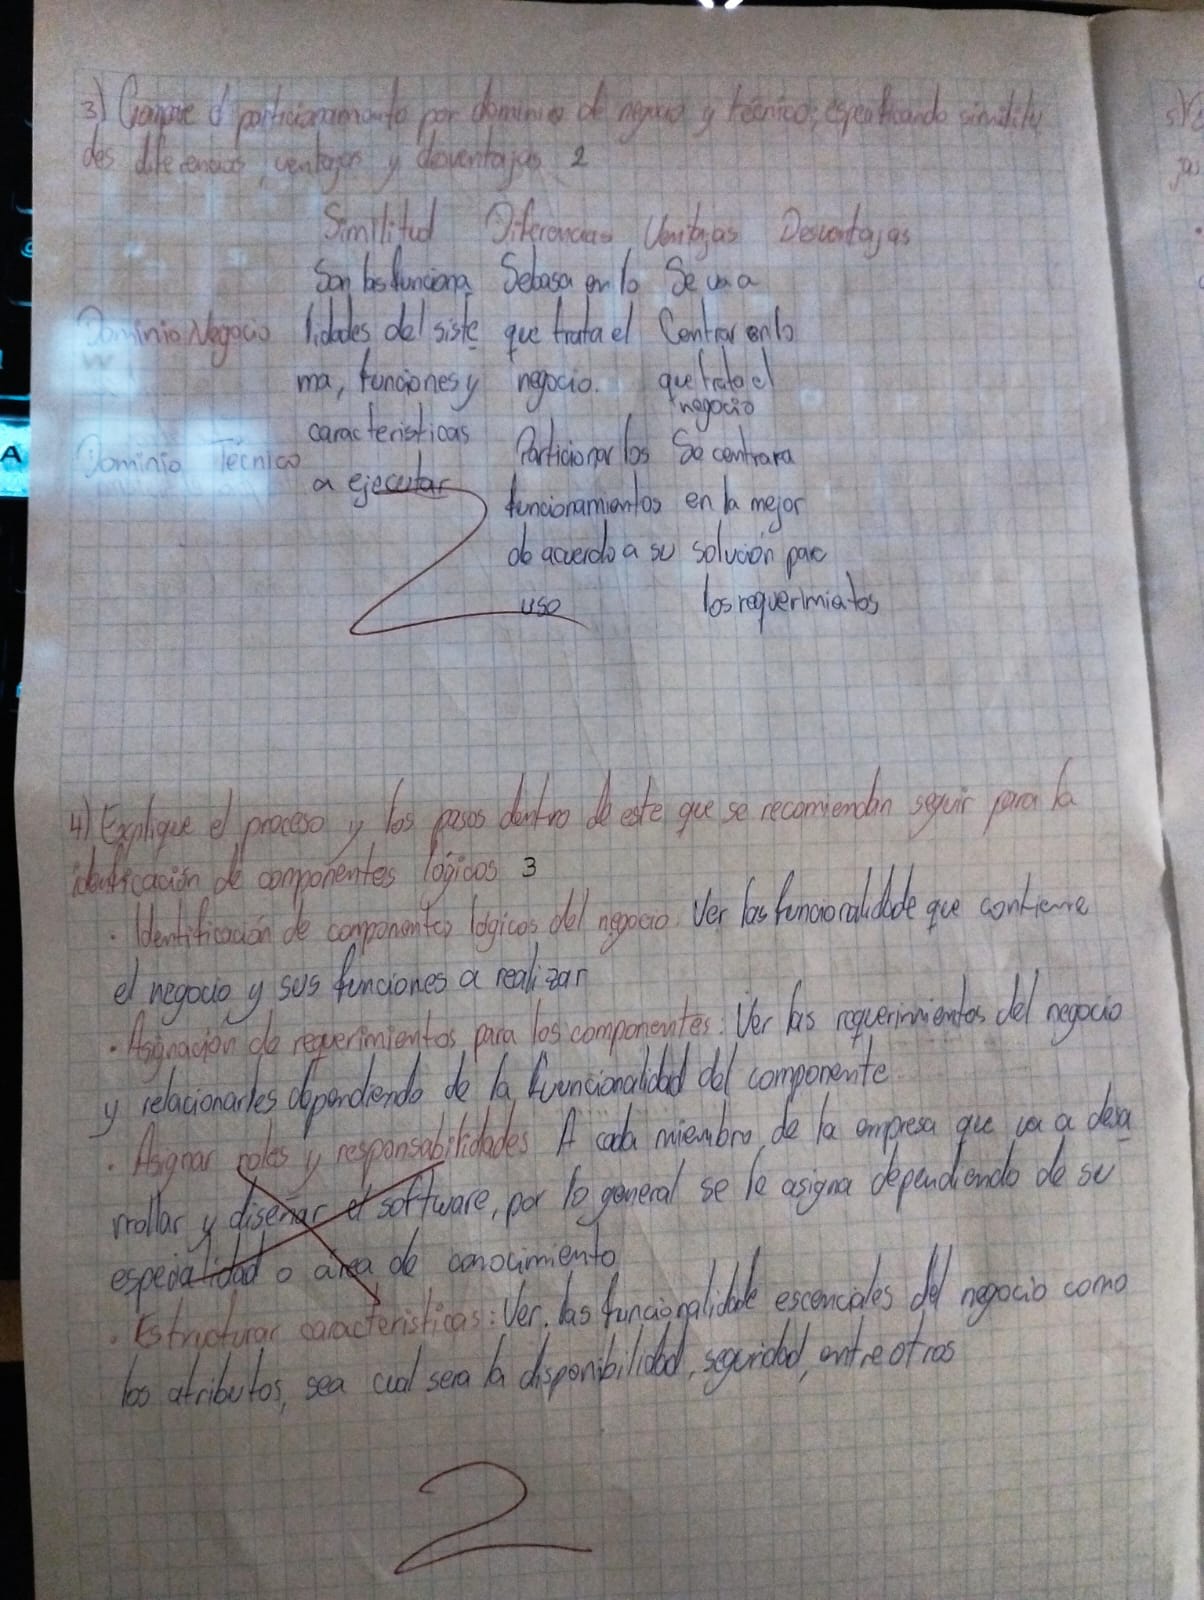 3) Compare el particionamiento por dominio de negocio y técnico; especificando similitu
des diferencias, ventajas y desventajas 2
Similitud Diferencias Ventajas Desventajas
Dominio Negocio
Son las funciona
lidades del siste
ma, funciones y
caracteristicas
a ejecutar
Se basa en lo
que trata el
negocio.
Se va a
Centrar en lo
que trata el
negocio
Dominio Técnico
Particionar los
funcionamientos
de acuerdo a su
uso
Se centrara
en la mejor
solución para
los requerimiatos
2
4) Explique el proceso y los pasos dentro de este que se recomiendan seguir para la
identificación de componentes lógicos 3
· Identificación de componentes lógicos del negocio. Ver las funcionalidade que contiene
el negocio y sus funciones a realizar
· Asignación de requerimientos para los componentes: Ver las requerimientos del negocio
y relacionarles dependiendo de la funcionalidad del componente
· Asignar roles y responsabilidades A cada miembro de la empresa que va a desa
rrollar y diseñar el software, por lo general se le asigna dependiendo de su
especialidad o área de conocimiento
· Estructurar caracteristicas: Ver. las funcionalidade escenciales del negocio como
los atributos, sea cual sera la disponibilidad, seguridad, entre otros
2
A